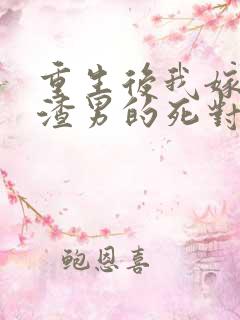 重生後我嫁
渣男的死對
鲍恩喜